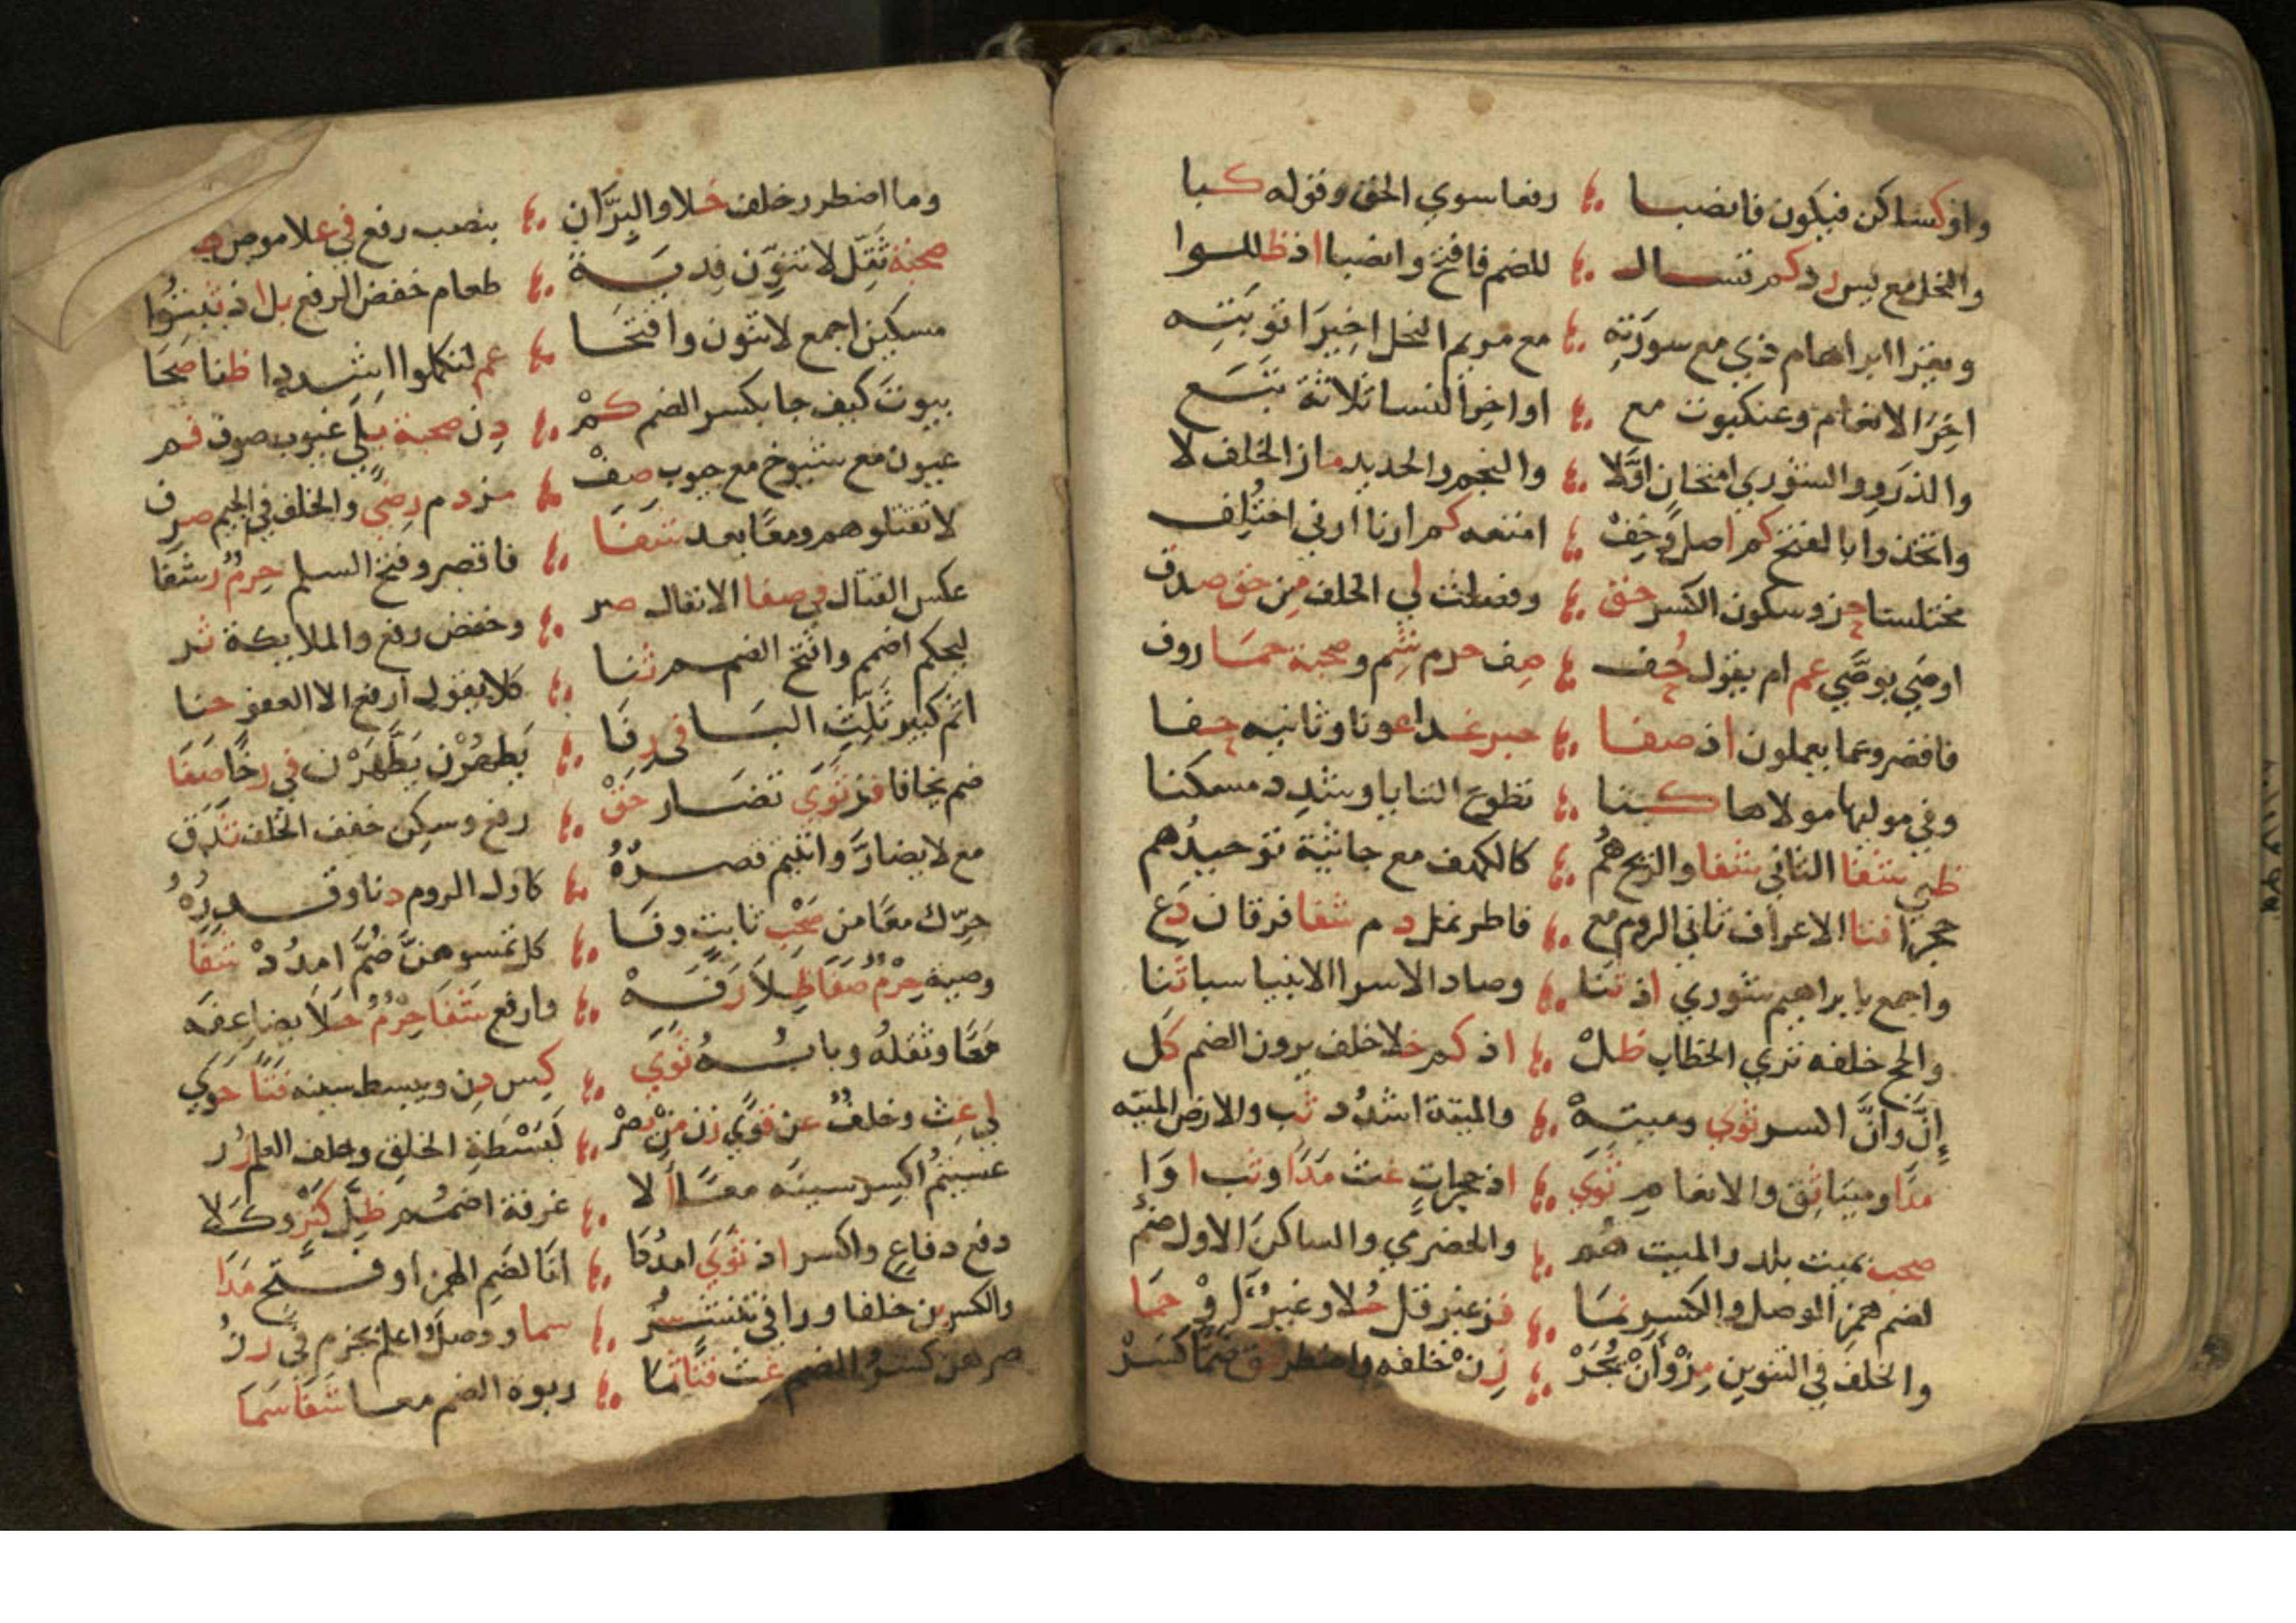 واو كسا كن فيكون فانصبا رفعا سوى الحق وقوله كبا
والنحل مع يس رد كم تسال للضم فافتح وانصبا اذ ظللوا
ويقرا ابراهام ذي مع سورته مع مريم النحل اخيرا توبته
اخر الانعام وعنكبوت مع اواخر النسا ثلاثة تبع
والذرو والشوري امتحان اولا والنجم والحديد ماز الخلف لا
واتخذوا بالفتح كم اصل وخف امتعه كم ارنا ارني اختلف
مختلسا حز وسكون الكسر حق وفصلت لي الخلف من حق صدق
اوصى بوصى عم ام يقول حف صف حرم شم وصحبة حما روف
فاقصر وعما يعملون اذ صفا حبر غدا عونا وثانيه حفا
وفي موليها مولاها كنا تطوع التا يا وشدد مسكنا
ظبي شفا الثاني شفا والريح هم كالكهف مع جاثية توحيدهم
حجر فتا الاعراف ثاني الروم مع فاطر نمل دم شفا فرقان دع
واجمع بابراهيم شوري اذ ثنا وصاد الاسرا الانبيا سبا ثنا
والحج خلفه تري الخطاب ظل اذ كم خلا خلف يرون الضم كل
إن وأن اكسر ثوي وميته والميتة اشدد ثب والارض الميته
مدا وميتا ثق والانعام ثوي اذ حجرات غث مدا وثب اوا
صحب بميت بلد والميت هم والحضرمي والساكن الاول ضم
لضم همز الوصل واكسره نما فز غير قل حلا وغير او حما
والخلف في التنوين مز وأن يجر زن خلفه واضطر ثق ضما كسر
وما اضطرر خلف خلا والبر ان بنصب رفع في علا موص
صحبة ثقل لا تنون فدية طعام خفض الرفع بل اذ ثبتوا
مسكين اجمع لا تنون وافتحا عم لتكملوا اشددا ظنا صحا
بيوت كيف جا بكسر الضم كم دن صحبة بلي غيوب صون فم
عيون مع شيوخ مع جيوب صف مز دم رضى والخلف في الجيم صرف
لا تقتلوهم ومعا بعد شفا فاقصر وفتح السلم حرم رشفا
عكس القتال في صفا الانفال صر وخفض رفع والملايكة ثر
ليحكم اضمم وافتح الضم ثنا كلا يقول ارفع الا العفو حنا
اثم كبير ثلث البا في رفا يطهرن يطهرن في رخا صفا
ضم يخافا فز ثوى تضار حق رفع وسكن خفف الخلف ثدق
مع لا يضار واتيتم قصره كاول الروم دنا وقدره
حرك معا من صحب ثابت وفا كل تمسوهن ضم امدد شفا
وصية حرم صفا ظلا رفه وارفع شفا حرم حلا يضاعفه
معا وثقله وبابه ثوى كس دن ويبسط سينه فتا حوى
لي غث وخلف عن قوى زن من يصر كبسطة الخلق وخلف العلم زر
عسيتم اكسر سينه معا الا غرفة اضمم ظل كنز وكلا
دفع دفاع واكسر اذ ثوى امددا انا لضم الهمز او فتح مدا
والكسر بن خلفا ورا في ننشر سما ووصل اعلم بجزم في رز
صرهن كسر الضم غث فتا ثما ربوة الضم معا شفا سما